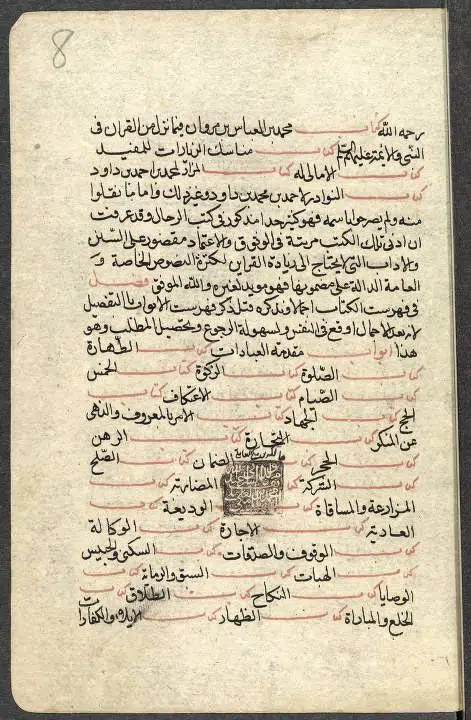 8
رحمه الله كتاب محمد بن العباس بن مروان فيما نزل من القران فى
النبى والائمة عليهم السلم كتاب مناسك الزيارات للمفيد
كتاب الامالى له كتاب المزار لمحمد بن احمد بن داود
كتاب النوادر لاحمد بن محمد بن داود وغير ذلك واما ما نقلوا
منه ولم يصرحوا باسمه فهو كثير جدا مذكور فى كتب الرجال وقد عرفت
ان ادنى تلك الكتب مرتبة فى الوثوق والاعتماد مقصور على السنن
والاداب التى لا يحتاج الى زيادة القراين لكثرة النصوص الخاصة و
العامة الدالة على مضمونها فهو مويد لغيره والله الموفق فصل
فى فهرست الكتاب اجمالا ونذكره قبل ذكر فهرست الابواب بالتفصيل
لان بعد الاجمال اوقع فى النفس ولسهولة الرجوع وتحصيل المطلب وهو
هذا ابواب مقدمة العبادات كتاب الطهارة
كتاب الصلوة كتاب الزكوة كتاب الخمس
كتاب الصيام كتاب الاعتكاف كتاب
الحج كتاب الجهاد كتاب الامر بالمعروف والنهى
عن المنكر كتاب التجارة كتاب الرهن
كتاب الحجر كتاب الضمان كتاب الصلح
كتاب الشركة كتاب المضاربة كتاب
المزارعة والمساقاة كتاب الوديعة كتاب
العارية كتاب الاجارة كتاب الوكالة
كتاب الوقوف والصدقات كتاب السكنى والحبيس
كتاب الهبات كتاب السبق والرماية كتاب
الوصايا كتاب النكاح كتاب الطلاق كتاب
الخلع والمباراة كتاب الظهار كتاب الايلاء والكفارات